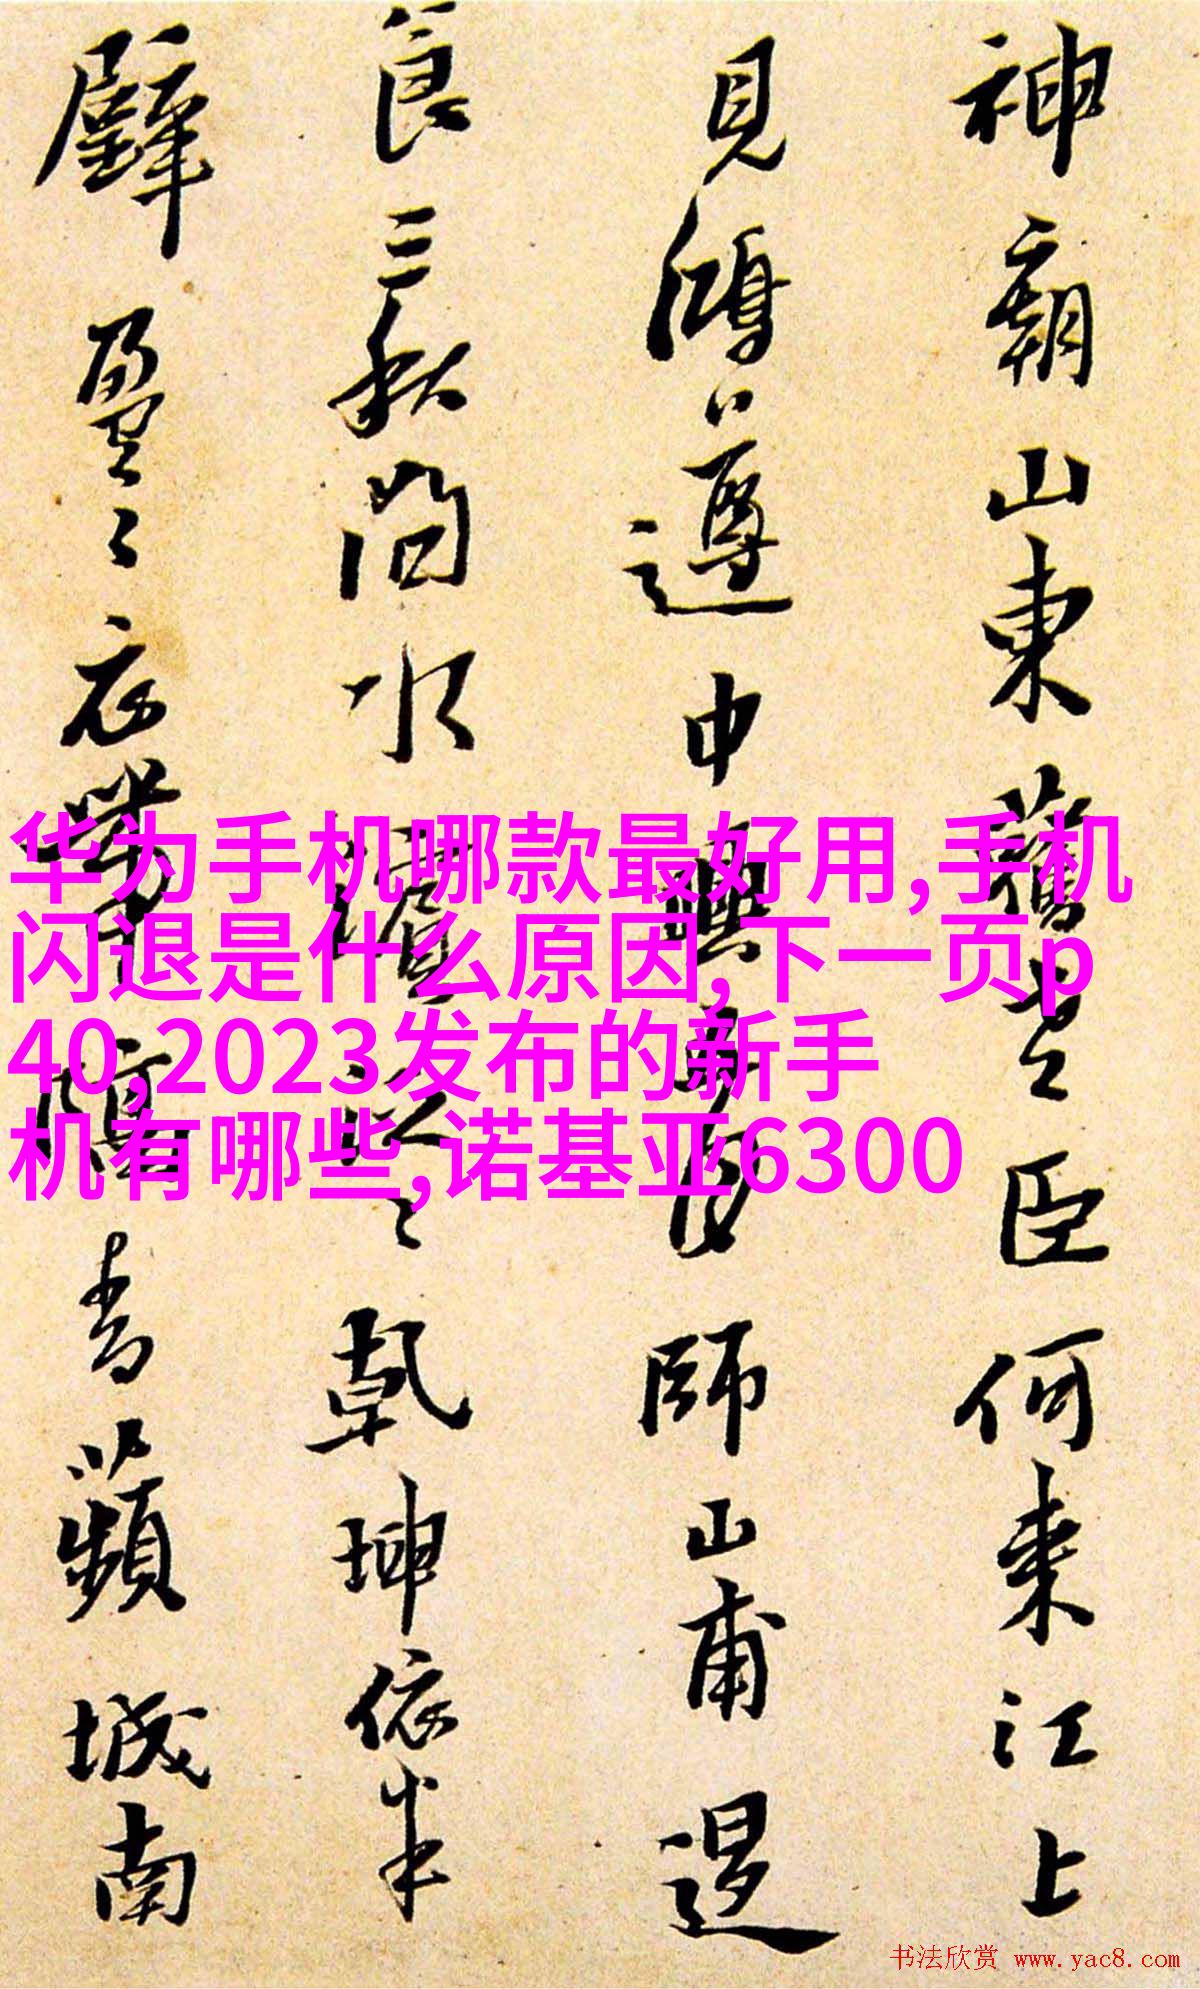 神廟山東舊老臣何來江上
見鴻遵中興
師山甫還
食三秋間水
乾坤依半
壁
衣帶
青蘋城南
华为手机哪款最好用,手机
闪退是什么原因,下一页p
40,2023发布的新手
机有哪些,诺基亚6300
书法欣赏 www.yac8.com